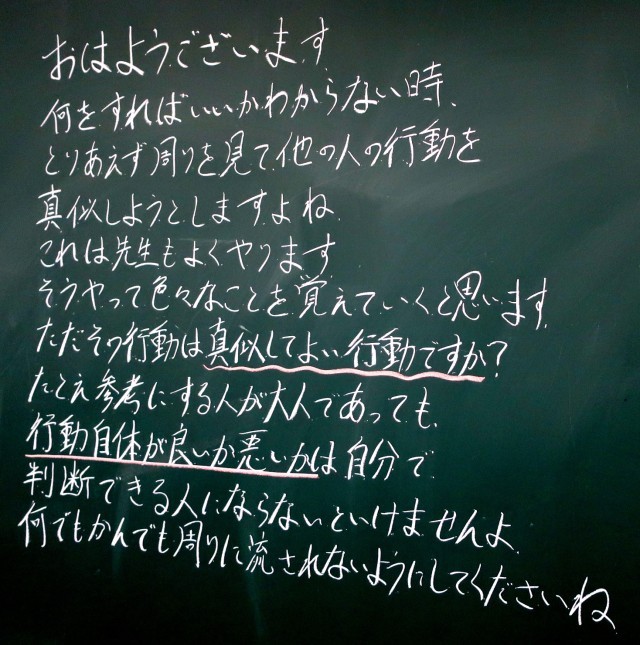 おはようございます
何をすればいいかわからない時、
とりあえず周りを見て他の人の行動を
真似しようとしますよね
これは先生もよくやります
そうやって色々なことを覚えていくと思います
ただその行動は真似してよい行動ですか?
たとえ参考にする人が大人であっても、
行動自体が良いか悪いかは自分で
判断できる人にならないといけませんよ
何でもかんでも周りに流されないようにしてくださいね